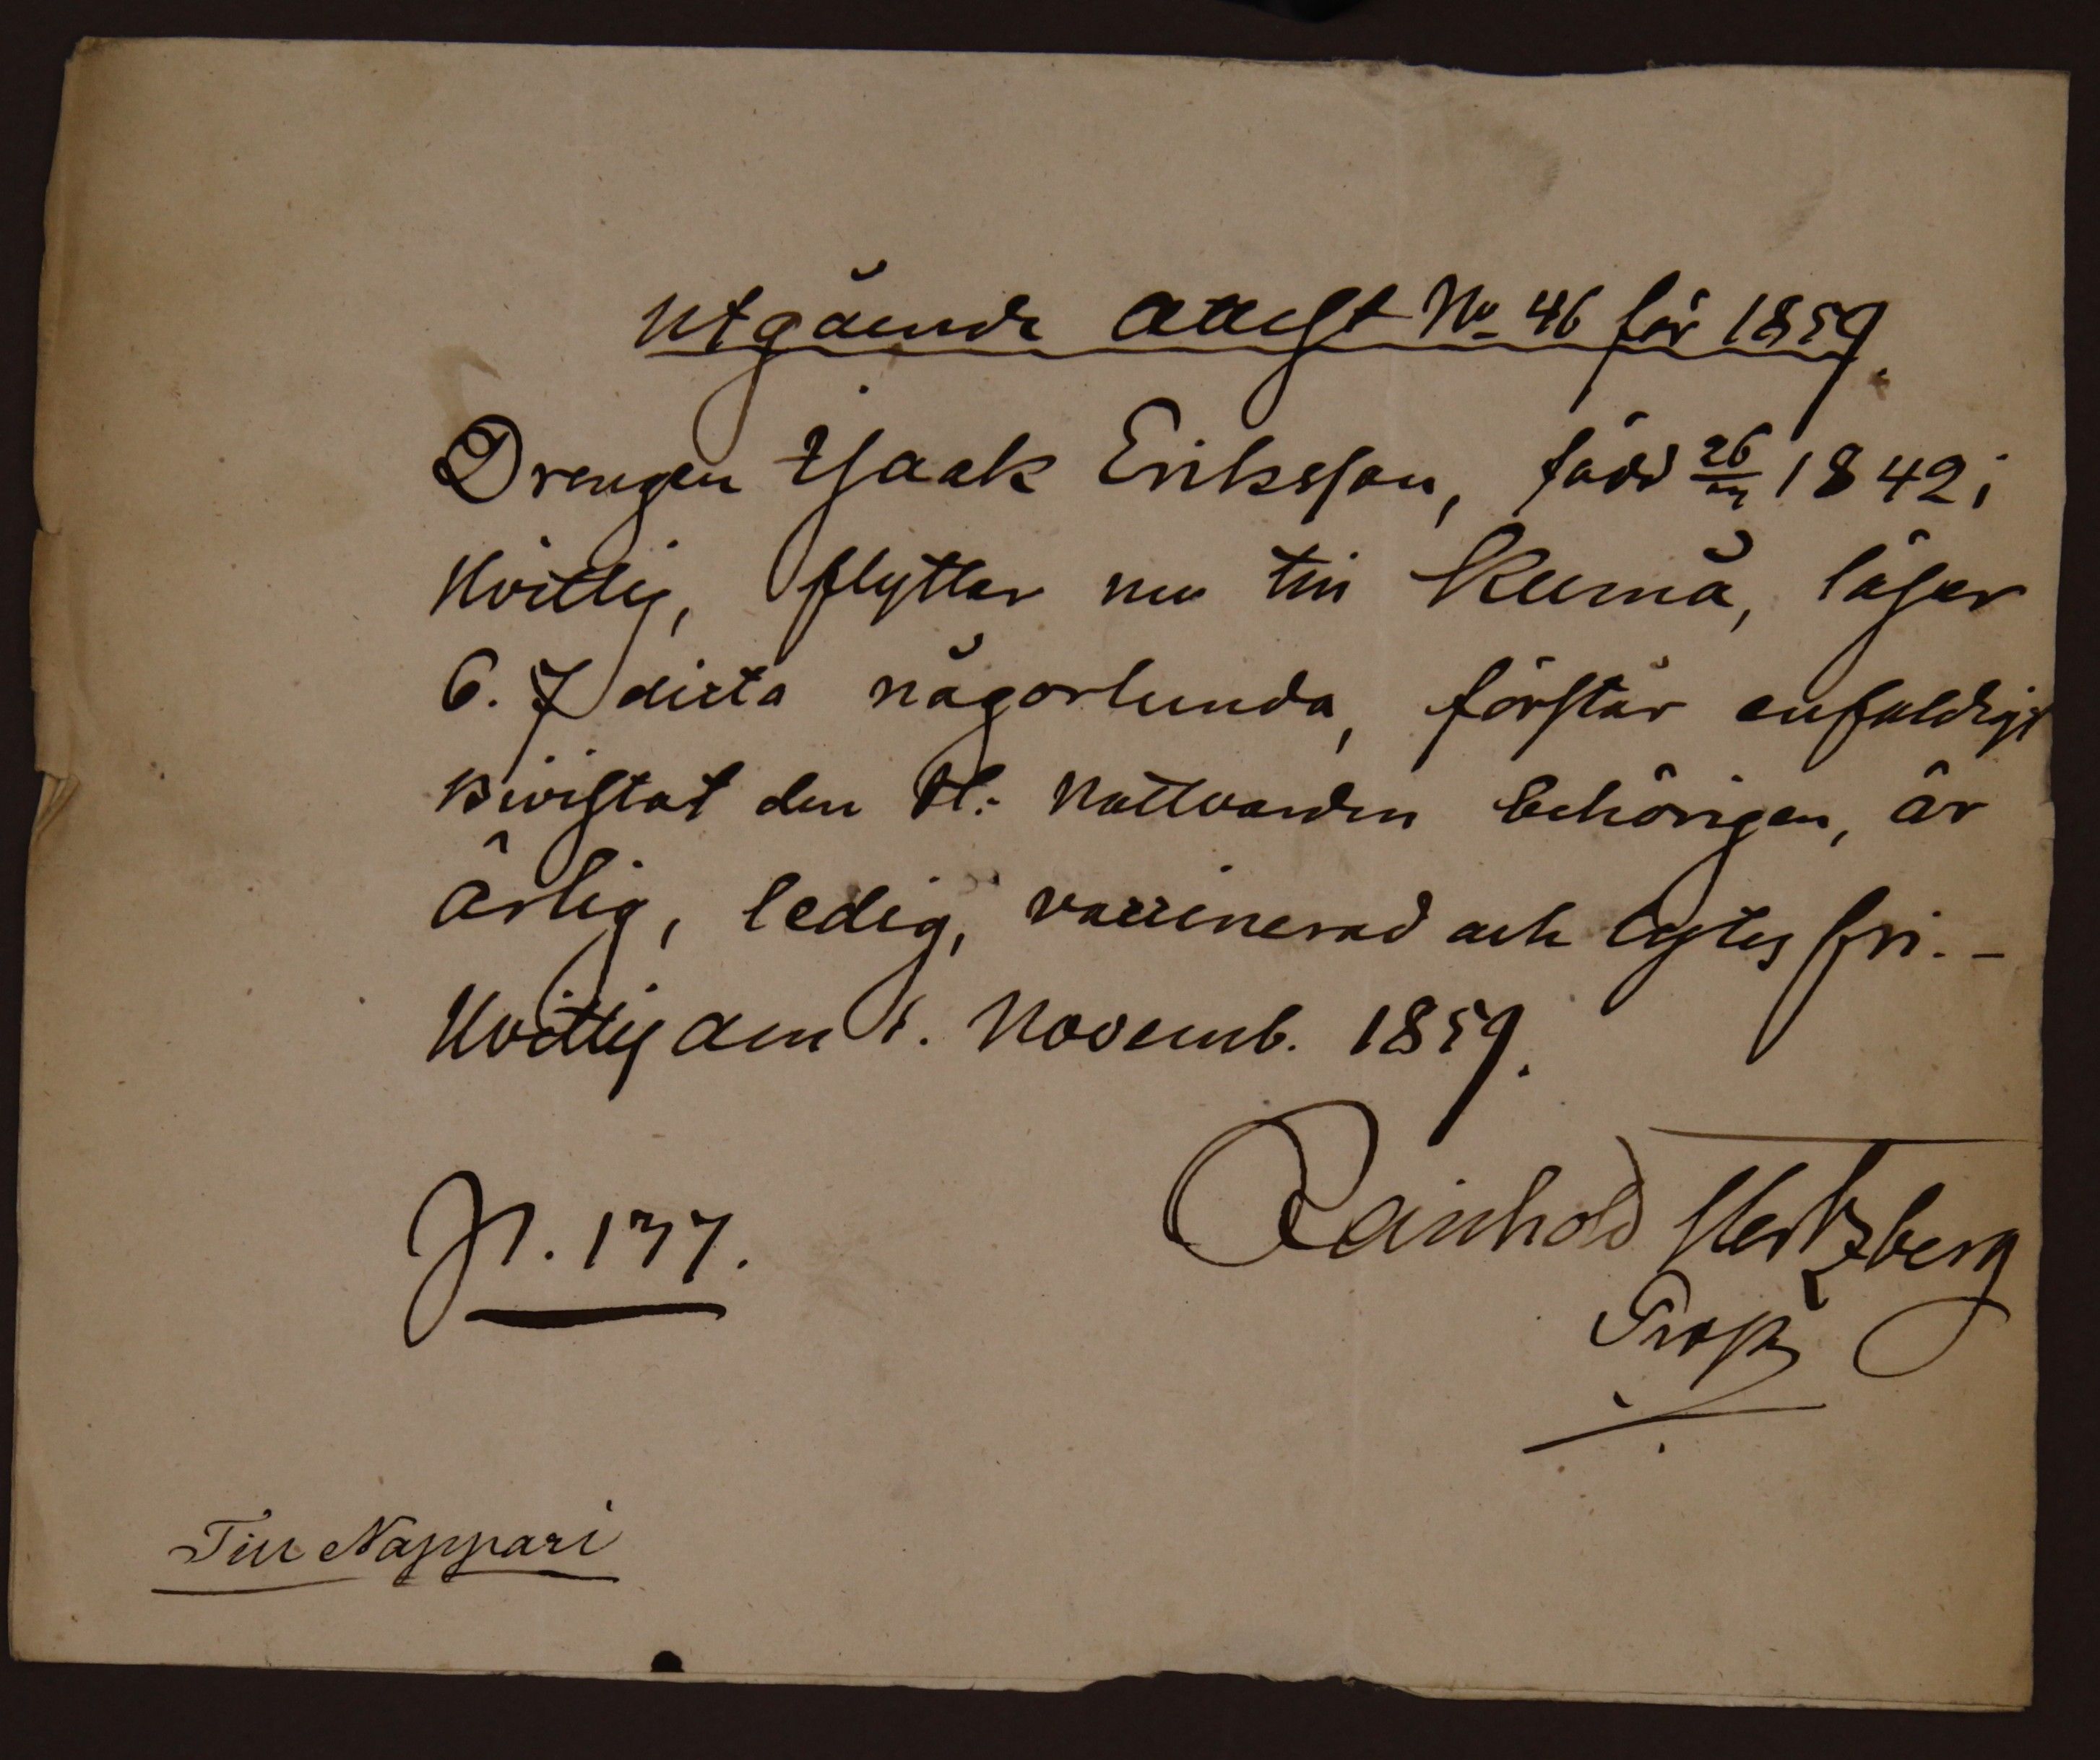 Utgående attest No 46 för 1859.
Drengen Isaak Eriksson, född 26/ 1842 i
Hvittis, flyttar nu till Kumå, läser
6. 7 dicta någorlunda, förstår enfaldigt
bivistat den H: Nattvarden behörigen, är
ärlig, ledig, vaccinerad och lytes fri. -
Hvittis den 1. Novemb. 1859.
Reinhold Hertzberg
p. 177.
Prost
Till Nappari